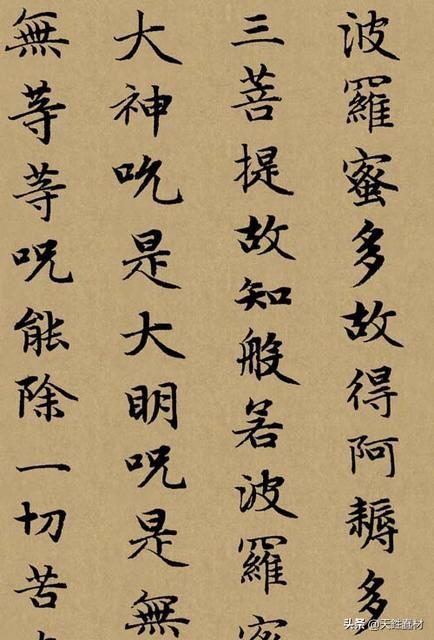 波羅蜜多故得阿耨多
三菩提故知般若波羅
大神呪是大明呪是無
無等等呪能除一切苦
头条 @天甡直材